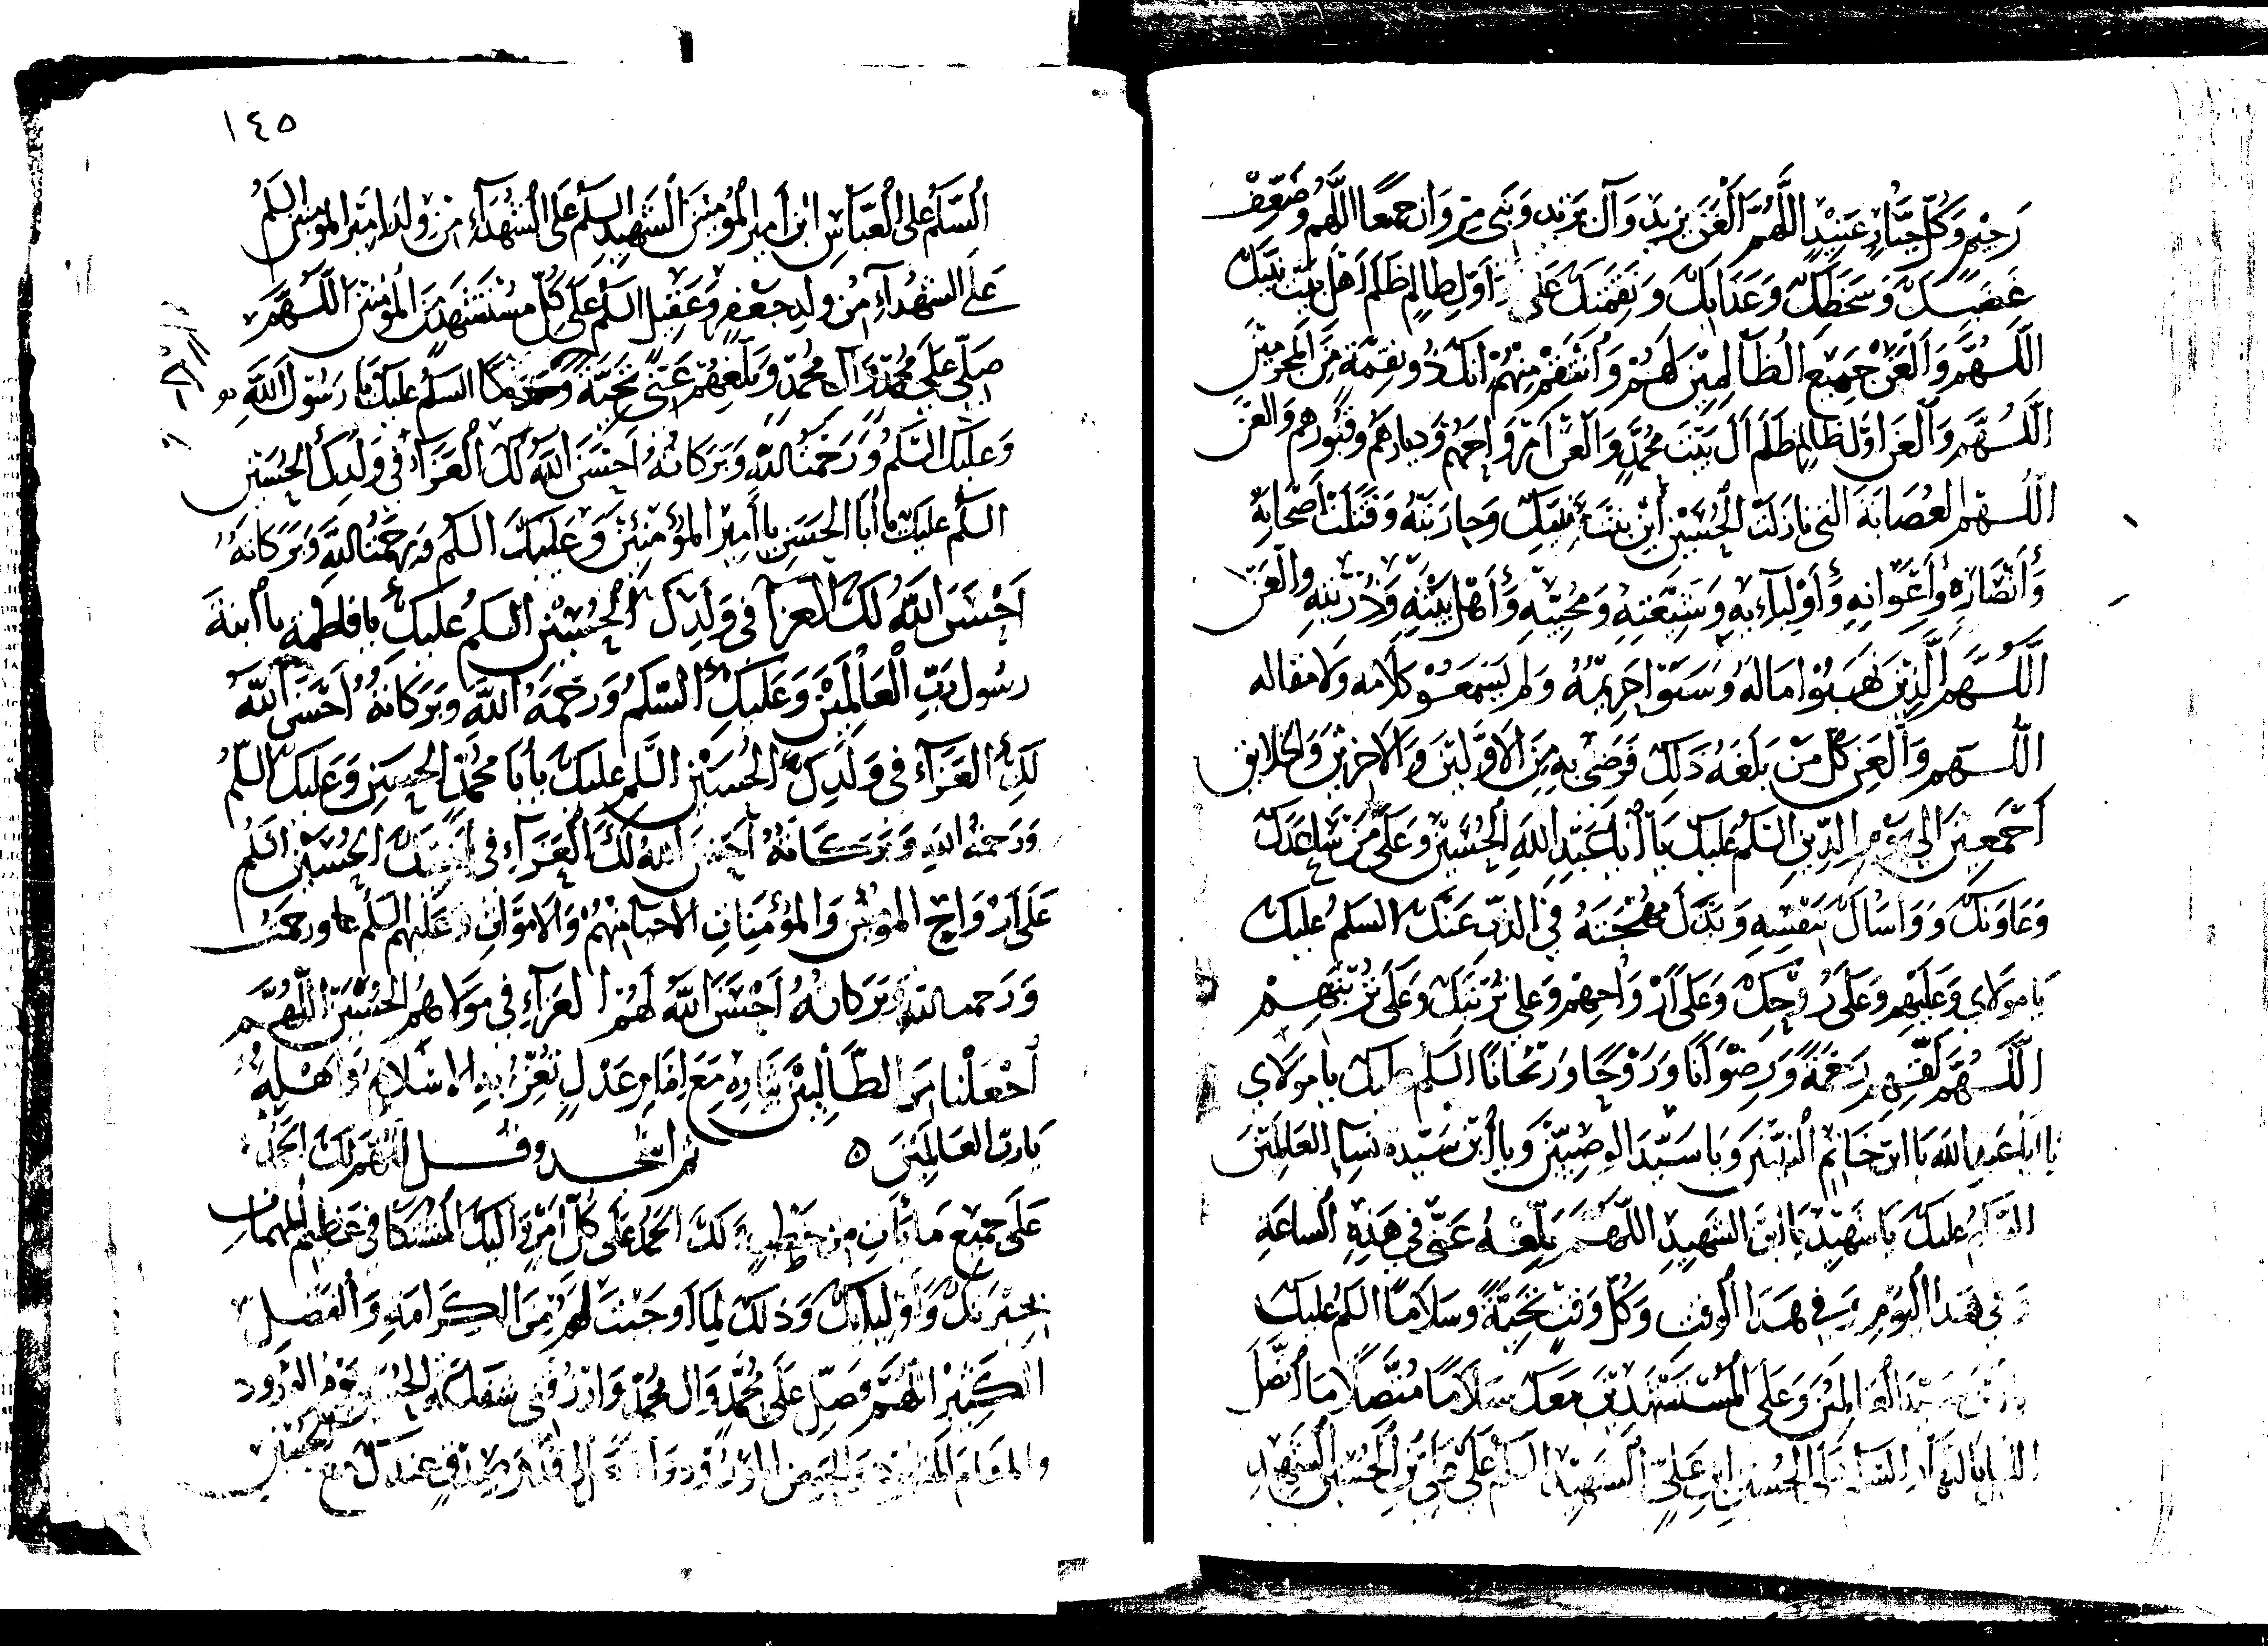 رَجِيمٍ وَكُلَّ جَبَّارٍ عَنِيدٍ اللَّهُمَّ الْعَنْ يَزِيدَ وَآلَ يَزِيدَ وَبَنِي مَرْوَانَ جَمِيعًا اللَّهُمَّ وَضَعِّفْ
غَضَبَكَ وَسَخَطَكَ وَعَذَابَكَ وَنَقِمَتَكَ عَلَى أَوَّلِ ظَالِمٍ ظَلَمَ أَهْلَ بَيْتِ نَبِيِّكَ
اللَّهُمَّ وَالْعَنْ جَمِيعَ الظَّالِمِينَ لَهُمْ وَانْتَقِمْ مِنْهُمْ إِنَّكَ ذُو نِقْمَةٍ مِنَ الْمُجْرِمِينَ
اللَّهُمَّ وَالْعَنْ أَوَّلَ ظَالِمٍ ظَلَمَ آلَ بَيْتِ مُحَمَّدٍ وَالْعَنْ أَرْوَاحَهُمْ وَدِيَارَهُمْ وَقُبُورَهُمْ وَالْعَنِ
اللَّهُمَّ الْعِصَابَةَ الَّتِي نَازَلَتِ الْحُسَيْنَ ابْنَ بِنْتِ نَبِيِّكَ وَحَارَبَتْهُ وَقَتَلَتْ أَصْحَابَهُ
وَأَنْصَارَهُ وَأَعْوَانَهُ وَأَوْلِيَاءَهُ وَشِيعَتَهُ وَمُحِبِّيهِ وَأَهْلَ بَيْتِهِ وَذُرِّيَّتَهُ وَالْعَنِ
اللَّهُمَّ الَّذِينَ نَهَبُوا مَالَهُ وَسَبَوْا حَرِيمَهُ وَلَمْ يَسْمَعُوا كَلَامَهُ وَلَا مَقَالَهُ
اللَّهُمَّ وَالْعَنْ كُلَّ مَنْ بَلَغَهُ ذَلِكَ فَرَضِيَ بِهِ مِنَ الْأَوَّلِينَ وَالْآخِرِينَ وَالْخَلَائِقِ
أَجْمَعِينَ إِلَى يَوْمِ الدِّينِ السَّلَمُ عَلَيْكَ يَا أَبَا عَبْدِ اللَّهِ الْحُسَيْنِ وَعَلَى مَنْ سَاعَدَكَ
وَعَاوَنَكَ وَوَاسَاكَ بِنَفْسِهِ وَبَذَلَ مُهْجَتَهُ فِي الذَّبِّ عَنْكَ السَّلَمُ عَلَيْكَ
يَا مَوْلَايَ وَعَلَيْهِمْ وَعَلَى رُوحِكَ وَعَلَى أَرْوَاحِهِمْ وَعَلَى تُرْبَتِكَ وَعَلَى تُرْبَتِهِمْ
اللَّهُمَّ لَقِّهِمْ رَحْمَةً وَرِضْوَانًا وَرَوْحًا وَرَيْحَانًا السَّلَمُ عَلَيْكَ يَا مَوْلَايَ
يَا أَبَا عَبْدِ اللَّهِ يَا ابْنَ خَاتَمِ النَّبِيِّينَ وَيَا سَيِّدَ الْوَصِيِّينَ وَيَا ابْنَ سَيِّدَةِ نِسَاءِ الْعَالَمِينَ
السَّلَمُ عَلَيْكَ يَا شَهِيدُ يَا ابْنَ الشَّهِيدِ اللَّهُمَّ بَلِّغْهُ عَنِّي فِي هَذِهِ السَّاعَةِ
وَفِي هَذَا الْيَوْمِ وَفِي هَذَا الْوَقْتِ وَكُلِّ وَقْتٍ تَحِيَّةً وَسَلَامًا السَّلَمُ عَلَيْكَ
يَا ابْنَ سَيِّدِ الْعَالَمِينَ وَعَلَى الْمُسْتَشْهَدِينَ مَعَكَ سَلَامًا مُتَّصِلًا مَا اتَّصَلَ
اللَّيْلُ بِالنَّهَارِ السَّلَمُ عَلَى الْحُسَيْنِ ابْنِ عَلِيٍّ الشَّهِيدِ السَّلَمُ عَلَى عَلِيِّ بْنِ الْحُسَيْنِ الشَّهِيدِ
١٤٥
السَّلَمُ عَلَى الْعَبَّاسِ ابْنِ أَمِيرِ الْمُؤْمِنِينَ الشَّهِيدِ السَّلَمُ عَلَى الشُّهَدَاءِ مِنْ وَلَدِ أَمِيرِ الْمُؤْمِنِينَ السَّلَمُ
عَلَى الشُّهَدَاءِ مِنْ وَلَدِ جَعْفَرٍ وَعَقِيلٍ السَّلَمُ عَلَى كُلِّ مُسْتَشْهَدٍ مِنَ الْمُؤْمِنِينَ اللَّهُمَّ
صَلِّ عَلَى مُحَمَّدٍ وَآلِ مُحَمَّدٍ وَبَلِّغْهُمْ عَنِّي تَحِيَّةً السَّلَمُ عَلَيْكَ يَا رَسُولَ اللَّهِ
وَعَلَيْكَ السَّلَمُ وَرَحْمَتُ اللَّهِ وَبَرَكَاتُهُ أَحْسَنَ اللَّهُ لَكَ الْعَزَاءَ فِي وَلَدِكَ الْحُسَيْنِ
السَّلَمُ عَلَيْكَ يَا أَبَا الْحَسَنِ يَا أَمِيرَ الْمُؤْمِنِينَ وَعَلَيْكَ السَّلَمُ وَرَحْمَتُ اللَّهِ وَبَرَكَاتُهُ
أَحْسَنَ اللَّهُ لَكَ الْعَزَا فِي وَلَدِكَ الْحُسَيْنِ السَّلَمُ عَلَيْكِ يَا فَاطِمَةُ يَا ابْنَةَ
رَسُولِ رَبِّ الْعَالَمِينَ وَعَلَيْكِ السَّلَمُ وَرَحْمَةُ اللَّهِ وَبَرَكَاتُهُ أَحْسَنَ اللَّهُ
لَكِ الْعَزَاءَ فِي وَلَدِكِ الْحُسَيْنِ السَّلَمُ عَلَيْكَ يَا أَبَا مُحَمَّدٍ الْحَسَنِ وَعَلَيْكَ السَّلَمُ
وَرَحْمَةُ اللَّهِ وَبَرَكَاتُهُ أَحْسَنَ اللَّهُ لَكَ الْعَزَاءَ فِي أَخِيكَ الْحُسَيْنِ السَّلَمُ
عَلَى أَرْوَاحِ الْمُؤْمِنِينَ وَالْمُؤْمِنَاتِ الْأَحْيَاءِ مِنْهُمْ وَالْأَمْوَاتِ وَعَلَيْهِمُ السَّلَمُ وَرَحْمَتُ
وَرَحْمَةُ اللَّهِ وَبَرَكَاتُهُ أَحْسَنَ اللَّهُ لَهُمُ الْعَزَاءَ فِي مَوْلَاهُمُ الْحُسَيْنِ اللَّهُمَّ
اجْعَلْنَا مِنَ الطَّالِبِينَ بِثَارِهِ مَعَ إِمَامٍ عَدْلٍ تُعِزُّ بِهِ الْإِسْلَامَ وَأَهْلَهُ
يَا رَبَّ الْعَالَمِينَ ه ثم اسْجُد وقُل اللَّهُمَّ لَكَ الْحَمْدُ
عَلَى جَمِيعِ مَا نَابَ مِنْ خَطْبٍ وَلَكَ الْحَمْدُ عَلَى كُلِّ أَمْرٍ وَإِلَيْكَ الْمُشْتَكَا فِي عَظِيمِ الْمُهِمَّاتِ
بِخِيَرَتِكَ وَأَوْلِيَائِكَ وَذَلِكَ لِمَا أَوْجَبْتَ لَهُمْ مِنَ الْكَرَامَةِ وَالْفَضْلِ
الْكَثِيرِ اللَّهُمَّ وَصَلِّ عَلَى مُحَمَّدٍ وَآلِ مُحَمَّدٍ وَارْزُقْنِي شَفَاعَةَ الْحُسَيْنِ يَوْمَ الْوُرُودِ
وَالْمَقَامَ الْمَشْهُودَ وَالْحَوْضَ الْمَوْرُودَ لِي قَدَمَ صِدْقٍ عِنْدَكَ مَعَ الْحُسَيْنِ